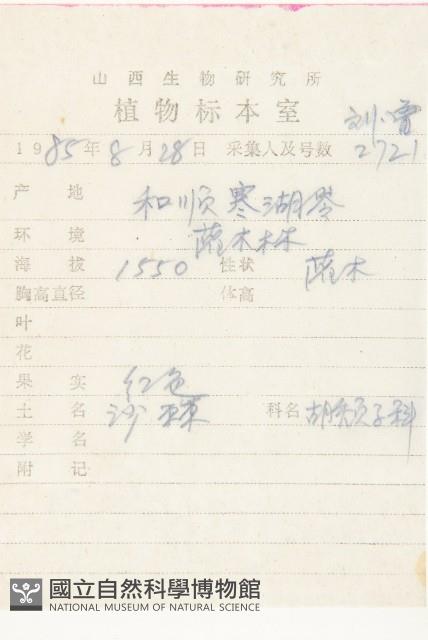 山西生物研究所
植物标本室
刘、曾
1985年8月28日 采集人及号数 2721
产地 和顺寒湖岺
环境 灌木林
海拔 1550 性状 灌木
胸高直径 体高
叶
花
果实 红色
土名 沙棘 科名 胡颓子科
学名
附记
國立自然科學博物館
NATIONAL MUSEUM OF NATURAL SCIENCE